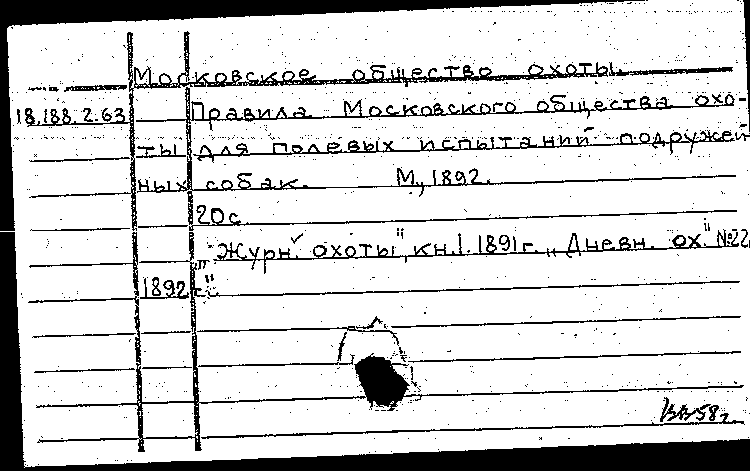 Московское общество охоты.
18.188.2.63 Правила Московского общества охо-
ты для полевых испытаний подружей
ных собак. М., 1892.
20с
"Журн. охоты", кн.I. 1891г. „Дневн. ох." №22,
1892г."